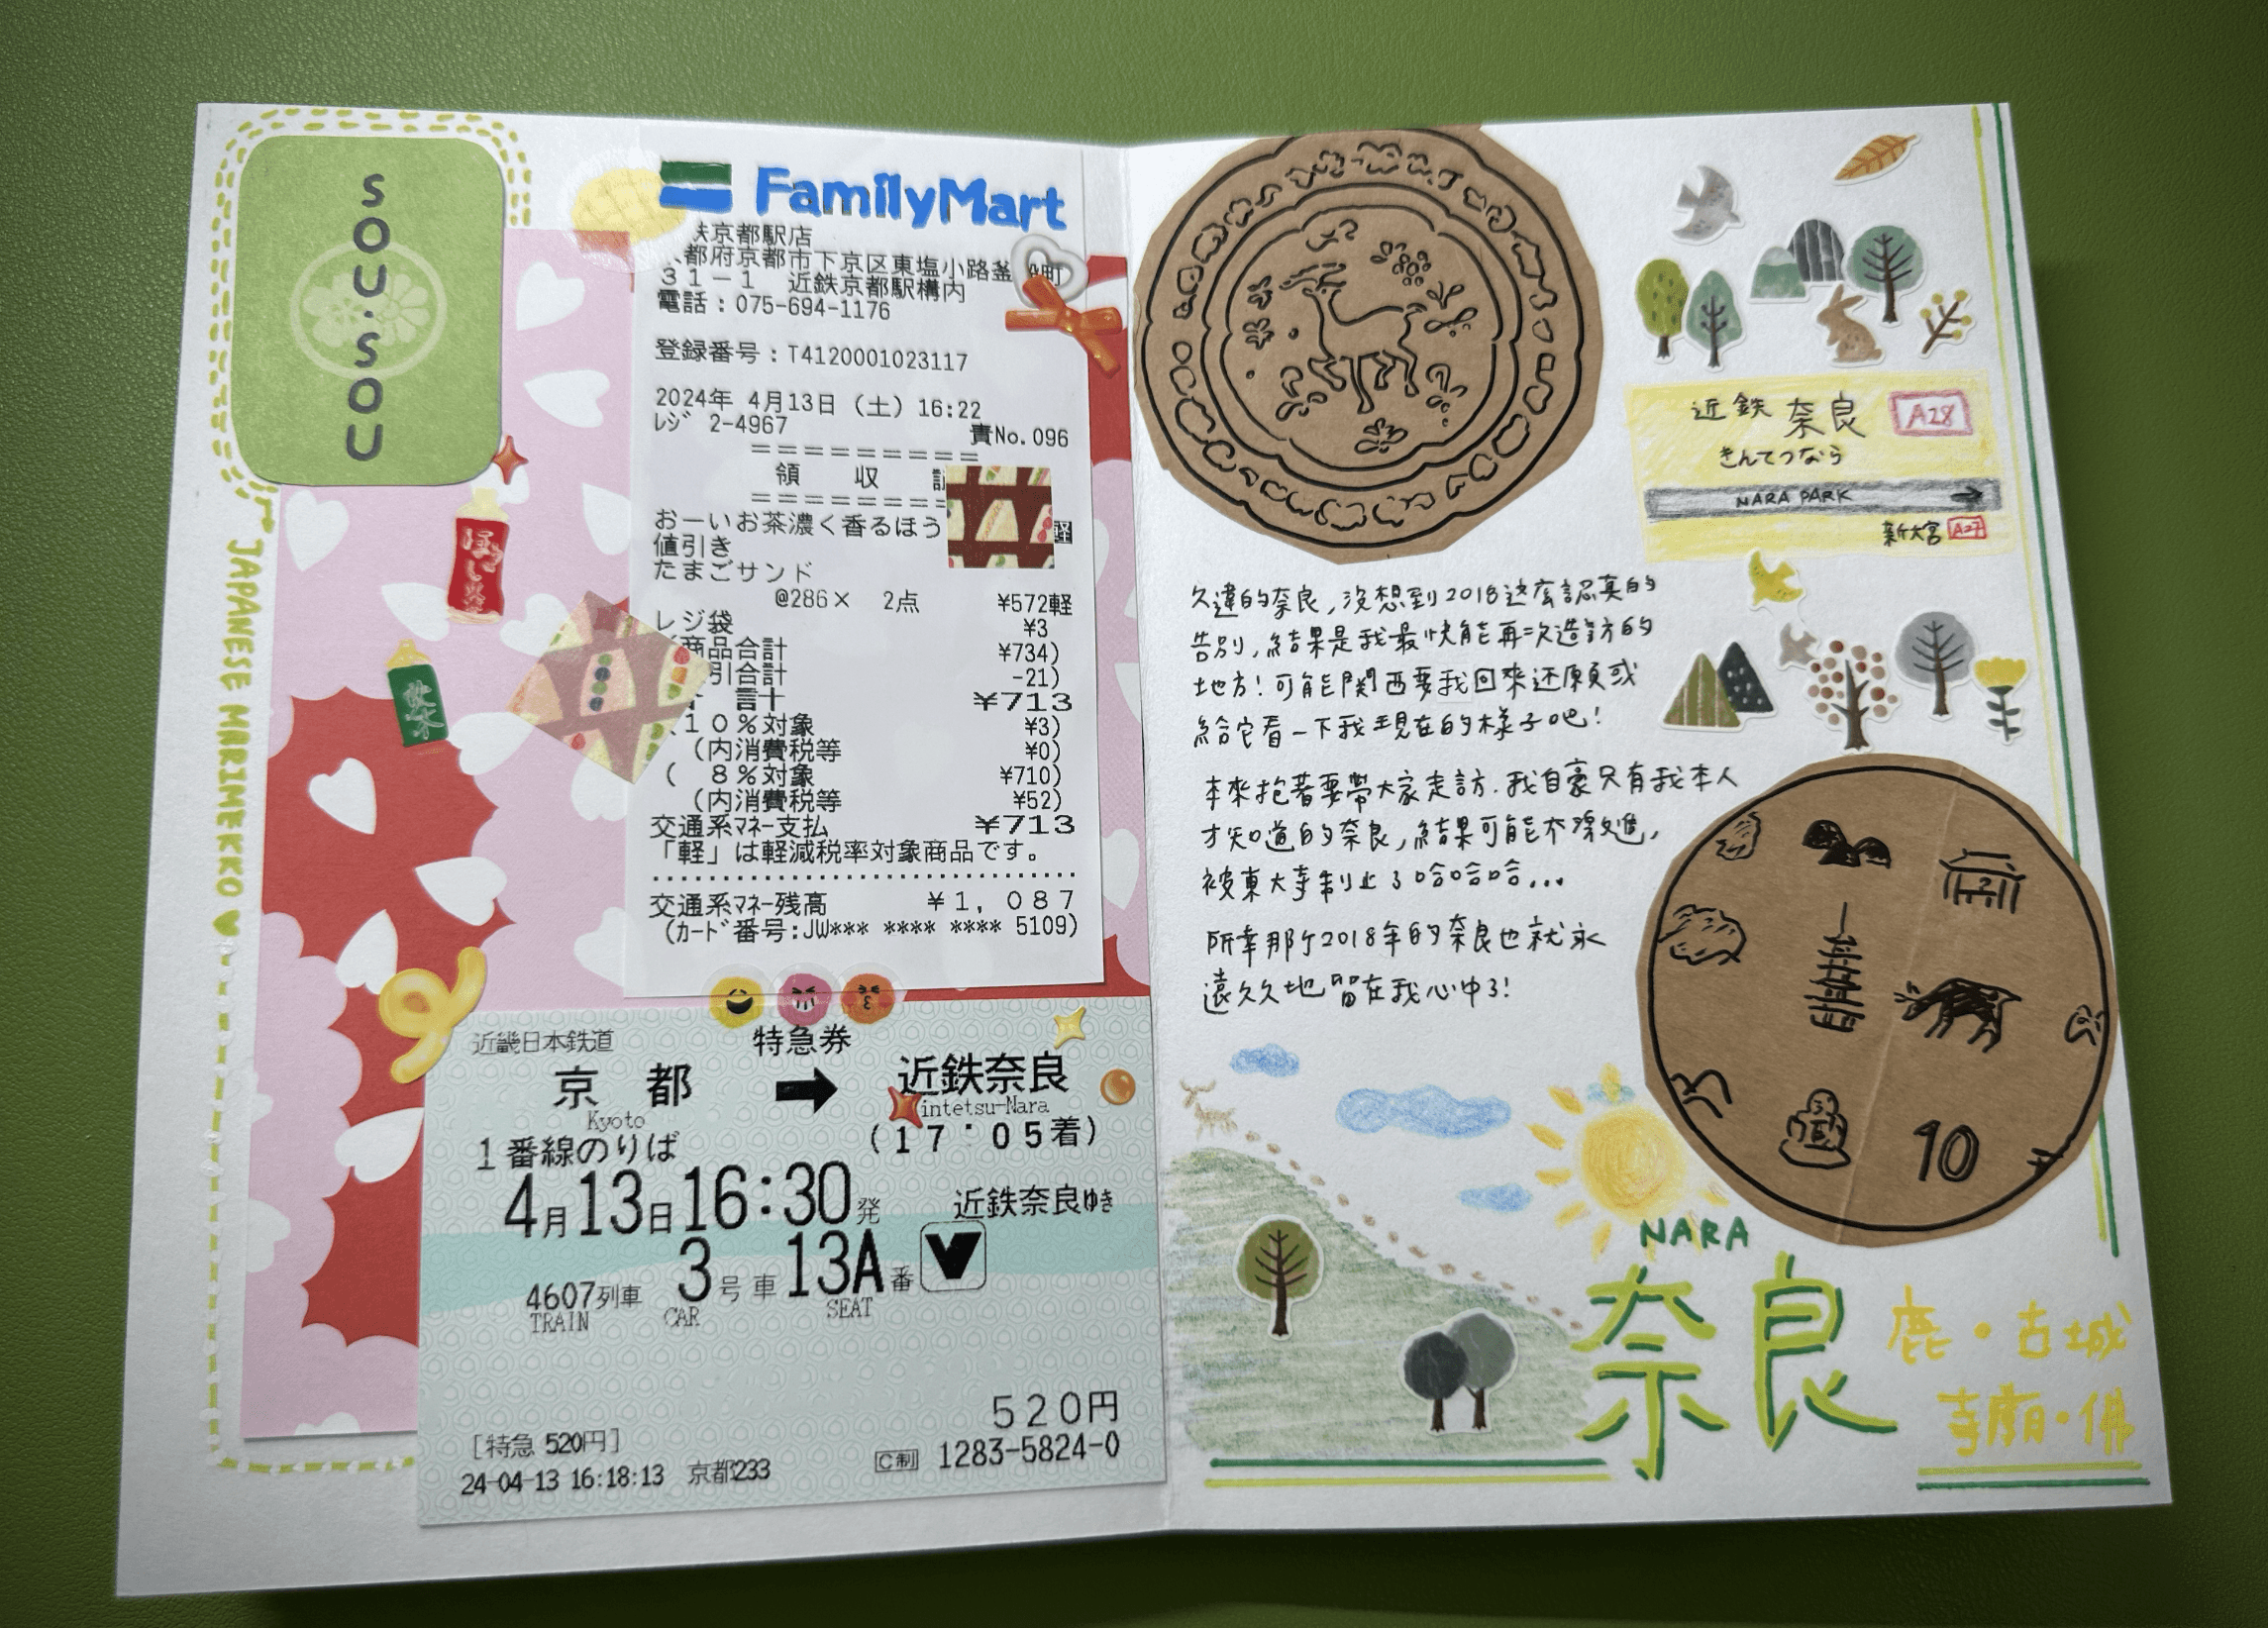 SOU・SOU
JAPANESE MARIMEKKO
FamilyMart
鉄京都駅店
都府京都市下京区東塩小路釜殿町
31-1 近鉄京都駅構内
電話:075-694-1176
登録番号:T4120001023117
2024年 4月13日(土)16:22
レジ 2-4967
責No.096
領 収
おーいお茶濃く香るほう
軽
値引き
たまごサンド
@286× 2点 ¥572軽
レジ袋 ¥3
商品合計 ¥734)
引合計 -21)
計 ¥713
10%対象 ¥3)
(内消費税等 ¥0)
( 8%対象 ¥710)
(内消費税等 ¥52)
交通系マネー支払 ¥713
「軽」は軽減税率対象商品です。
交通系マネー残高 ¥1,087
(カード番号:JW*** **** **** 5109)
近畿日本鉄道
特急券
京都
Kyoto
→
近鉄奈良
intetsu-Nara
1番線のりば
(17:05着)
4月13日16:30発
近鉄奈良ゆき
4607列車 3号車 13A番
TRAIN CAR SEAT
520円
[特急 520円]
24-04-13 16:18:13 京都233
C制 1283-5824-0
近鉄 奈良 A28
きんてつなら
NARA PARK →
新大宮 A27
久違的奈良,沒想到2018这麼認真的
告別,結果是我最快能再次造訪的
地方!可能関西要我回來还願或
給它看一下我現在的樣子吧!
本來抱著要帶大家走訪.我自豪只有我本人
才知道的奈良,結果可能不
被東大寺制止了哈哈哈...
所幸那个2018年的奈良也就永
遠久久地留在我心中了!
10
NARA
奈良
鹿・古城
寺廟・佛